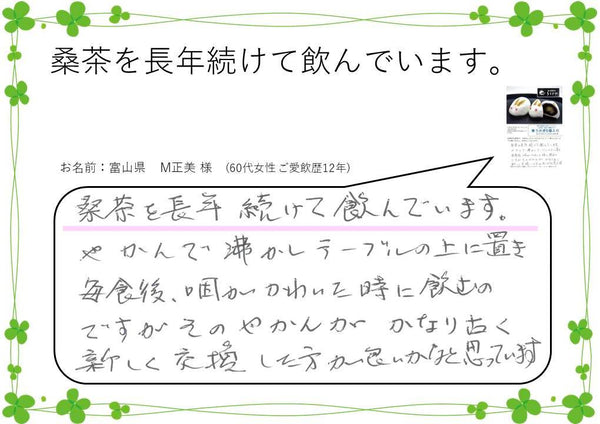 桑茶を長年続けて飲んでいます。
お名前：富山県　M正美 様　(60代女性 ご愛飲歴12年)
桑茶を長年 続けて飲んでいます。
やかんで 沸かしテーブルの上に置き
毎食後、咽がかわいた時に飲むの
ですがそのやかんが かなり古く
新しく交換した方が良いかなと思っています